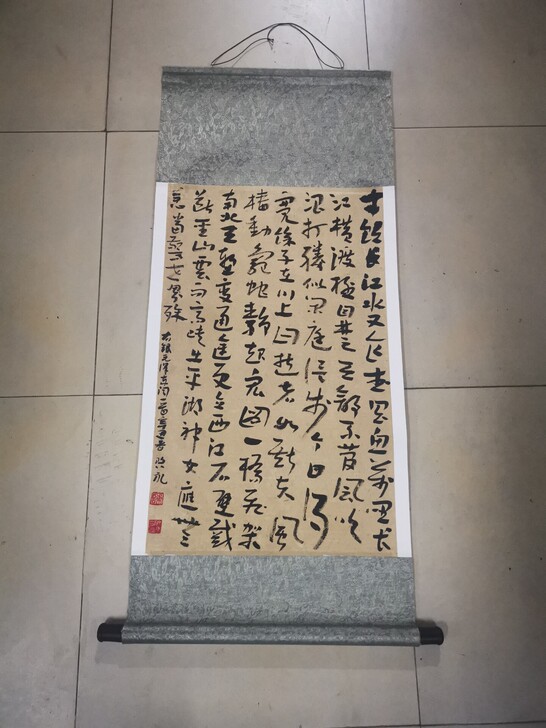 才飲長江水又食武昌魚萬里長
江橫渡極目楚天舒不管風吹
浪打勝似閑庭信步今日得
寬餘子在川上曰逝者如斯夫風
檣動龜蛇靜起宏圖一橋飛架
南北天塹變通途更立西江石壁截
斷巫山雲雨高峽出平湖神女應無
恙當驚世界殊
右錄毛澤東詞一首